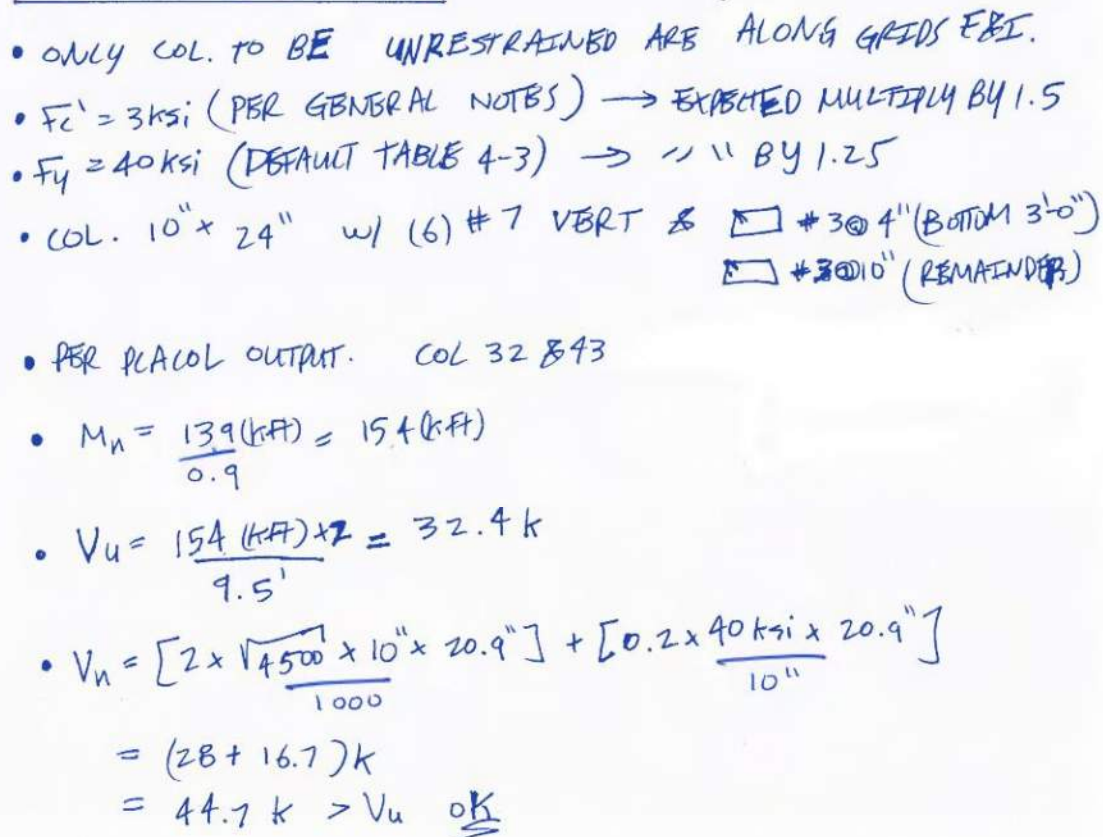 • ONLY COL. TO BE UNRESTRAINED ARE ALONG GRIDS E&I.
• Fc' = 3ksi (PER GENERAL NOTES) → EXPECTED MULTIPLY BY 1.5
• Fy = 40 ksi (DEFAULT TABLE 4-3) → " " BY 1.25
• COL. 10" x 24" w/ (6) #7 VERT & #3@4" (BOTTOM 3'-0")
#3@10" (REMAINDER)
• PER PCACOL OUTPUT. COL 32 &43
• Mn = 139(k·Ft)/0.9 = 154(k·Ft)
• Vu = 154 (k·Ft)x2/9.5' = 32.4 k
• Vn = [2 x √4500 x 10" x 20.9"/1000] + [0.2 x 40 ksi x 20.9"/10"]
= (28 + 16.7)k
= 44.7 k > Vu OK